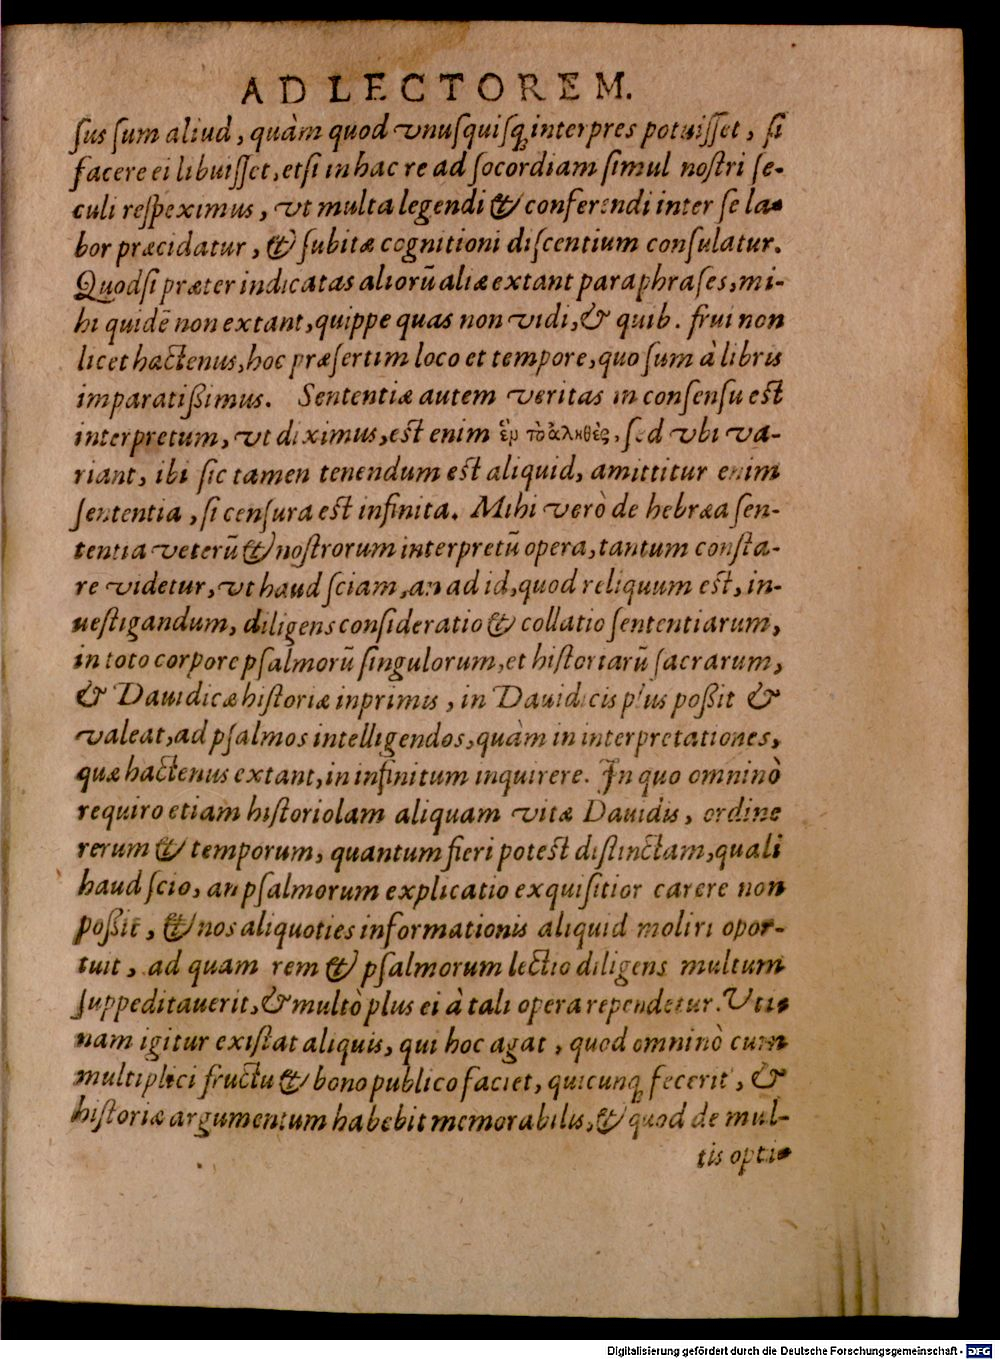 AD LECTOREM.
ſus ſum aliud, quàm quod vnuſquiſq; interpres potuiſſet, ſi
facere ei libuiſſet, etſi in hac re ad ſocordiam ſimul noſtri ſe-
culi reſpeximus, vt multa legendi & conferendi inter ſe la-
bor præcidatur, & ſubitæ cognitioni diſcentium conſulatur.
Quodſi præter indicatas aliorũ aliæ extant paraphraſes, mi-
hi quidẽ non extant, quippe quas non vidi, & quib. frui non
licet hactenus, hoc præſertim loco et tempore, quo ſum à libris
imparatißimus. Sententiæ autem veritas in conſenſu est
interpretum, vt diximus, est enim ἓν τὸ ἀληθὲς, ſed vbi va-
riant, ibi ſic tamen tenendum est aliquid, amittitur enim
ſententia, ſi cenſura est infinita. Mihi verò de hebræa ſen-
tentia veterũ & noſtrorum interpretũ opera, tantum conſta-
re videtur, vt haud ſciam, an ad id, quod reliquum est, in-
ueſtigandum, diligens conſideratio & collatio ſententiarum,
in toto corpore pſalmorũ ſingulorum, et hiſtoriarũ ſacrarum,
& Dauidicæ hiſtoriæ inprimis, in Dauidicis plus poßit &
valeat, ad pſalmos intelligendos, quàm in interpretationes,
quæ hactenus extant, in infinitum inquirere. In quo omninò
requiro etiam hiſtoriolam aliquam vitæ Dauidis, ordine
rerum & temporum, quantum fieri potest diſtinctam, quali
haud ſcio, an pſalmorum explicatio exquiſitior carere non
poßit, & nos aliquoties informationis aliquid moliri opor-
tuit, ad quam rem & pſalmorum lectio diligens multum
ſuppeditauerit, & multò plus ei à tali opera rependetur. Vti-
nam igitur exiſtat aliquis, qui hoc agat, quod omninò cum
multiplici fructu & bono publico faciet, quicunq; fecerit, &
hiſtoriæ argumentum habebit memorabilis, & quod de mul-
tis opti-
Digitalisierung gefördert durch die Deutsche Forschungsgemeinschaft - DFG